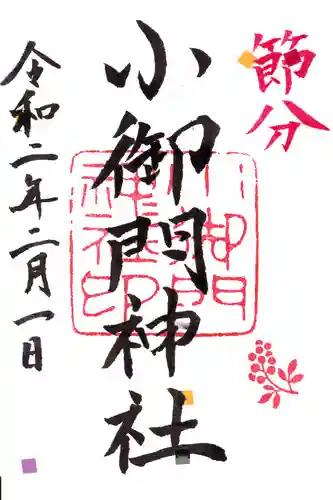 節分
小御門神社
令和二年二月一日
小御門
神社印